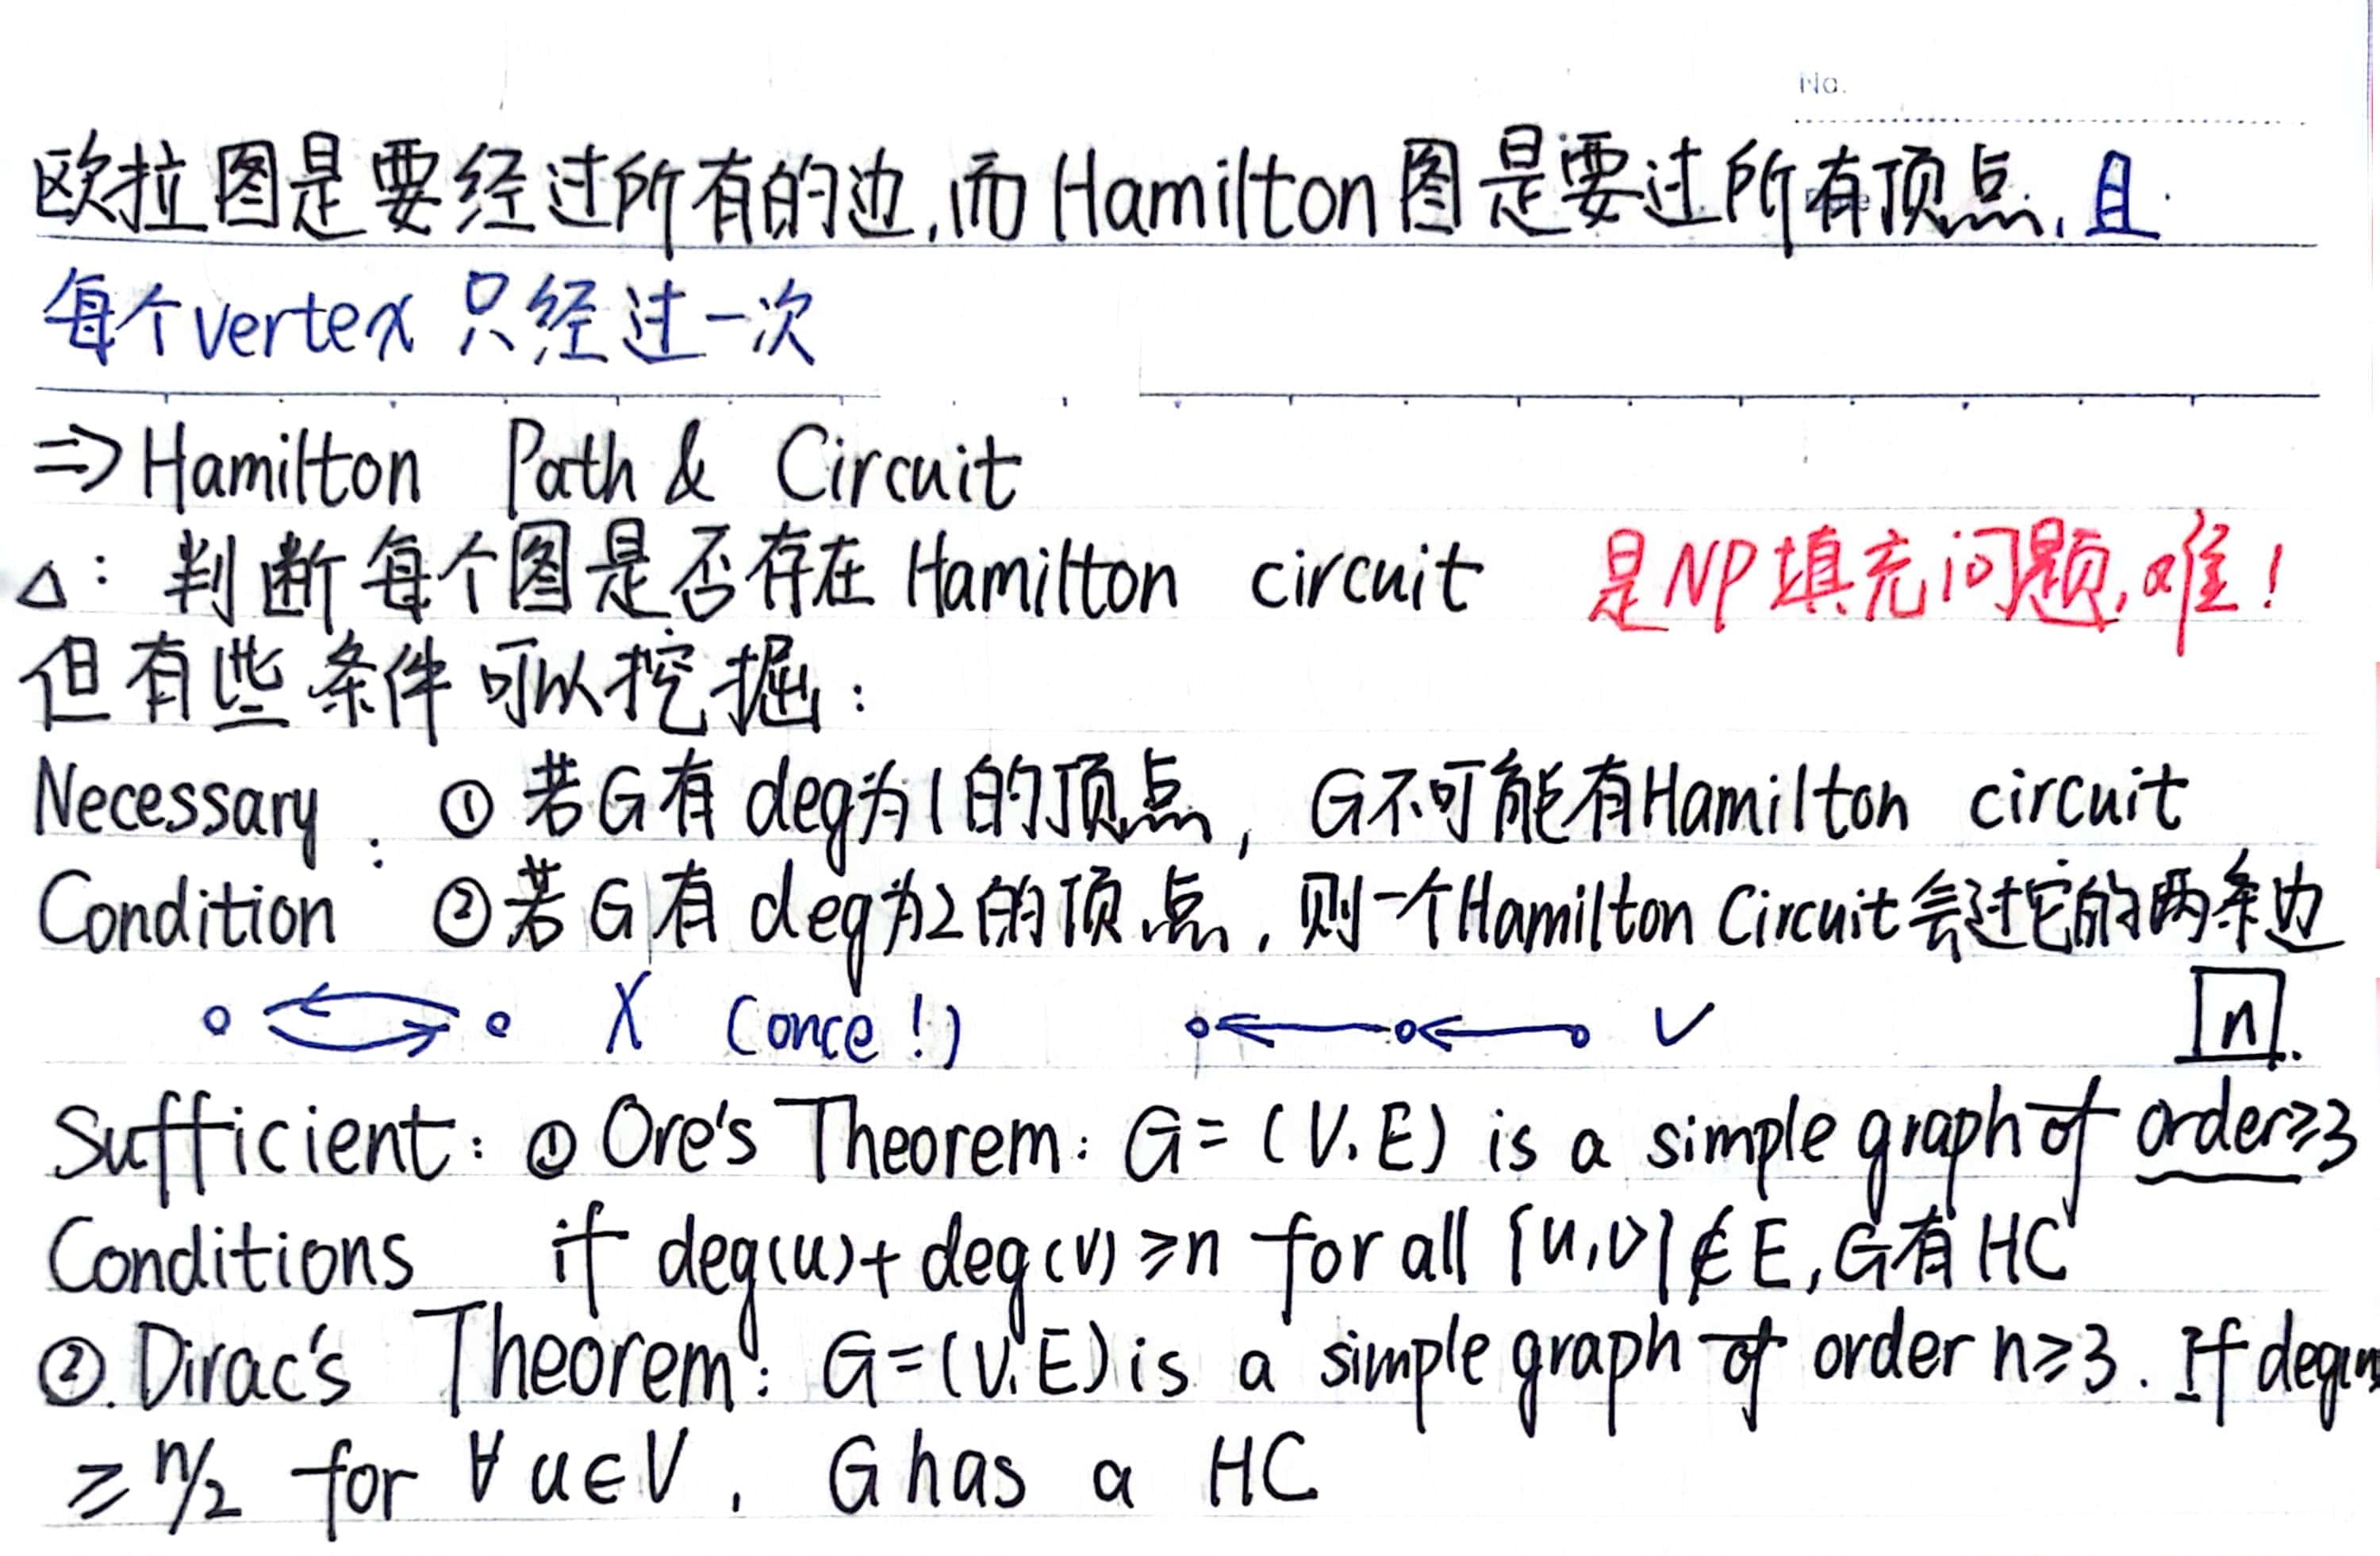 No.
欧拉图是要经过所有的边,而Hamilton图是要过所有顶点,且
每个vertex 只经过一次
⇒Hamilton Path & Circuit
△: 判断每个图是否存在Hamilton circuit 是NP填充问题,难!
但有些条件可以挖掘:
Necessary : ① 若G有deg为1的顶点, G不可能有Hamilton circuit
Condition ②若G有deg为2的顶点,则一个Hamilton Circuit会过它的两条边
X (once!) ✓ n.
Sufficient: ① Ore's Theorem: G=(V,E) is a simple graph of order≥3
Conditions if deg(u)+deg(v)≥n for all {u,v}∉E,G有HC
②.Dirac's Theorem: G=(V,E) is a simple graph of order n≥3. If deg(u)
≥n/2 for ∀u∈V, G has a HC